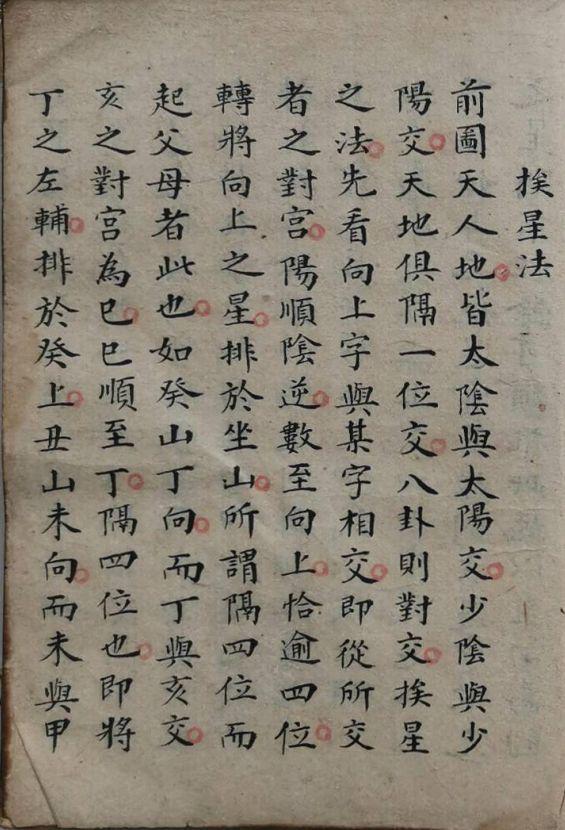 挨星法
前圖天人地皆太陰與太陽交少陰與少
陽交天地俱隔一位交八卦則對交挨星
之法先看向上字與某字相交即從所交
者之對宮陽順陰逆數至向上恰逾四位
轉將向上之星排於坐山所謂隔四位而
起父母者此也如癸山丁向而丁與亥交
亥之對宮為巳巳順至丁隔四位也即將
丁之左輔排於癸上丑山未向而未與甲